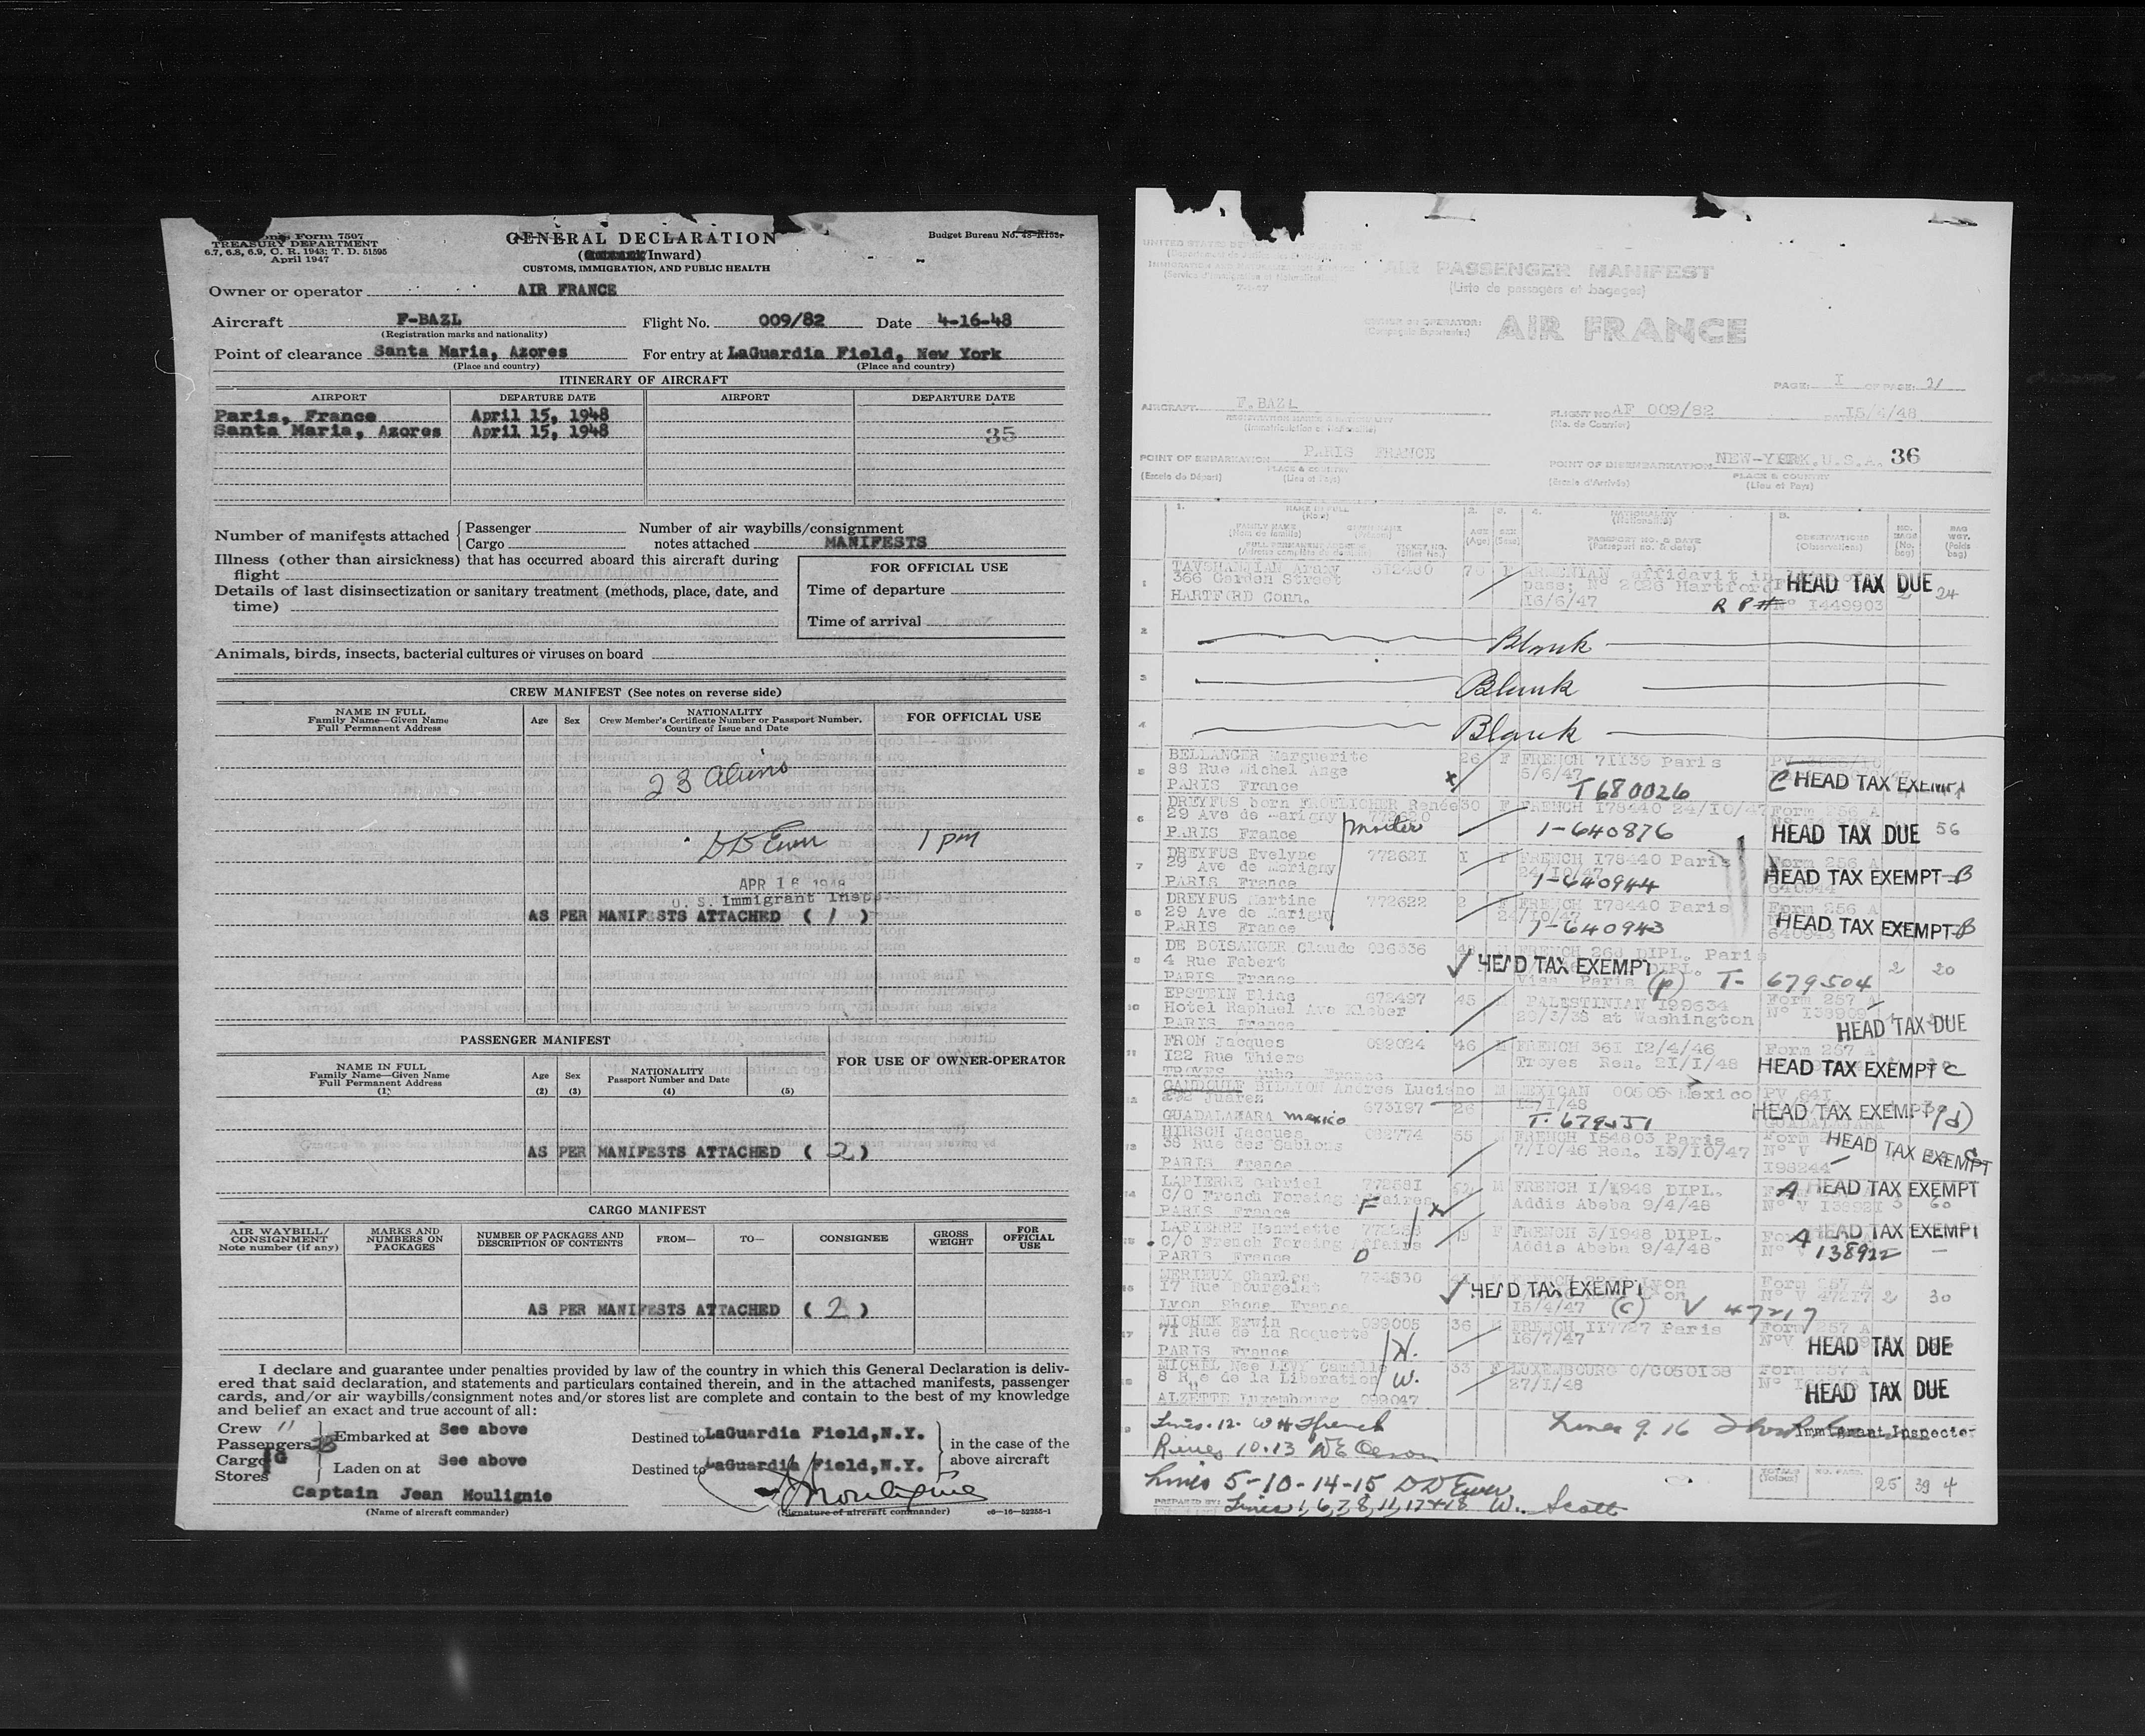 Form 7507
TREASURY DEPARTMENT
6.7, 6.8, 6.9, C. R. 1943; T. D. 51595
April 1947
GENERAL DECLARATION
(Inward)
CUSTOMS, IMMIGRATION, AND PUBLIC HEALTH
Budget Bureau No.
Owner or operator AIR FRANCE
Aircraft F-BAZL Flight No. 009/82 Date 4-16-48
(Registration marks and nationality)
Point of clearance Santa Maria, Azores For entry at LaGuardia Field, New York
(Place and country) (Place and country)
ITINERARY OF AIRCRAFT
AIRPORT DEPARTURE DATE AIRPORT DEPARTURE DATE
Paris, France April 15, 1948
Santa Maria, Azores April 15, 1948 35
Number of manifests attached { Passenger
Cargo
Number of air waybills/consignment
notes attached MANIFESTS
Illness (other than airsickness) that has occurred aboard this aircraft during
flight
Details of last disinsectization or sanitary treatment (methods, place, date, and
time)
FOR OFFICIAL USE
Time of departure
Time of arrival
Animals, birds, insects, bacterial cultures or viruses on board
CREW MANIFEST (See notes on reverse side)
NAME IN FULL
Family Name—Given Name
Full Permanent Address
Age Sex
NATIONALITY
Crew Member's Certificate Number or Passport Number.
Country of Issue and Date
FOR OFFICIAL USE
23 aliens
DD Ewer 1 pm
APR 16 1948
U. S. Immigrant Insp.
AS PER MANIFESTS ATTACHED ( 1 )
PASSENGER MANIFEST
NAME IN FULL
Family Name—Given Name
Full Permanent Address
(1)
Age
(2)
Sex
(3)
NATIONALITY
Passport Number and Date
(4)
(5)
FOR USE OF OWNER-OPERATOR
AS PER MANIFESTS ATTACHED ( 2 )
CARGO MANIFEST
AIR WAYBILL/
CONSIGNMENT
Note number (if any)
MARKS AND
NUMBERS ON
PACKAGES
NUMBER OF PACKAGES AND
DESCRIPTION OF CONTENTS
FROM— TO— CONSIGNEE
GROSS
WEIGHT
FOR
OFFICIAL
USE
AS PER MANIFESTS ATTACHED ( 2 )
I declare and guarantee under penalties provided by law of the country in which this General Declaration is deliv-
ered that said declaration, and statements and particulars contained therein, and in the attached manifests, passenger
cards, and/or air waybills/consignment notes and/or stores list are complete and contain to the best of my knowledge
and belief an exact and true account of all:
Crew 11
Passengers
Cargo
Stores
Embarked at See above
Laden on at See above
Destined to LaGuardia Field, N.Y.
Destined to LaGuardia Field, N.Y.
in the case of the
above aircraft
Captain Jean Moulignie
(Name of aircraft commander)
(Signature of aircraft commander)
c6—16—52255-1
AIR PASSENGER MANIFEST
(Liste de passagers et bagages)
OWNER OR OPERATOR:
AIR FRANCE
PAGE: I OF PAGE:
AIRCRAFT F.BAZL
FLIGHT NO AF 009/82 15/4/48
(No. de Courrier)
POINT OF EMBARKATION PARIS FRANCE
(Escale de Départ)
PLACE & COUNTRY
(Lieu et Pays)
POINT OF DISEMBARKATION NEW-YORK.U.S.A. 36
(Escale d'Arrivée)
PLACE & COUNTRY
(Lieu et Pays)
TAVSHANJIAN Araxy 70 F
366 Garden Street
HARTFORD Conn.
ARMENIAN affidavit in
pass: No 2026 Hartford
16/6/47
R P # No 1449903
HEAD TAX DUE 24
Blank
Blank
Blank
BELLANGER Marguerite 26 F FRENCH 71139 Paris
88 Rue Michel Ange 5/6/47
PARIS France T680026
C HEAD TAX EXEMPT
DREYFUS born FROELICHER Renée 30 F FRENCH 178440 24/10/47 Form 256 A
29 Ave de Marigny
PARIS France 1-640876
HEAD TAX DUE 56
DREYFUS Evelyne 772621 FRENCH 178440 Paris Form 256 A
29 Ave de Marigny 24/10/47
PARIS France 1-640944 640944
HEAD TAX EXEMPT-B
DREYFUS Martine 772622 2 F FRENCH 178440 Paris Form 256 A
29 Ave de Marigny 24/10/47
PARIS France 1-640943
HEAD TAX EXEMPT-B
DE BOISANGER Claude 026336 FRENCH 268 DIPL. Paris
4 Rue Fabert HEAD TAX EXEMPT 2 20
PARIS France Visa Paris (p) T- 679504
EPSTEIN Elias 672497 45 PALESTINIAN 199634 Form 257 A
Hotel Raphael Ave Kleber 20/3/38 at Washington
PARIS France
HEAD TAX DUE
FROM Jacques 099024 46 M FRENCH 361 12/4/46 Form 257 A
122 Rue Thiers Troyes Ren. 21/1/48
TROYES Aube France
HEAD TAX EXEMPT C
GANDOULF BILLION Andres Luciano M MEXICAN 00505 Mexico PV 641
Juarez 673197 26
GUADALAJARA mexico
HEAD TAX EXEMPT (d)
HIRSCH Jacques 55 FRENCH 154803 Paris
38 Rue des Sablons 7/10/46 Ren. 13/10/47
PARIS France 198244
HEAD TAX EXEMPT
LAPIERRE Gabriel 772581 M FRENCH 1/1948 DIPL.
C/O French Foreing Affaires Addis Abeba 9/4/48
PARIS France No V 138921 3 60
A HEAD TAX EXEMPT
LAPIERRE Henriette F FRENCH 3/1948 DIPL.
C/O French Foreing Affairs Addis Abeba 9/4/48
PARIS France 138922
A HEAD TAX EXEMPT
MERIEUX Charles Lyon Form 257 A
17 Rue Bourgelat HEAD TAX EXEMPT No V 47217 2 30
Lyon Rhone France 15/4/47 (c) V 47217
MICHEK Erwin 099005 36 FRENCH 117727 Paris Form 257 A
71 Rue de la Roquette 16/7/47
PARIS France H.
HEAD TAX DUE
MICHEL Nee LEVY Camille 33 F LUXEMBOURG 0/C050138 Form 257 A
8 Rue de la Liberation W. 27/1/48
ALZETTE Luxembourg 099047
HEAD TAX DUE
Lines 9. 16
Immigrant Inspector
Lines 5-10-14-15 DD Ewer
Lines 1,6,7,8,11,17+18 W. Scott
25 39 4